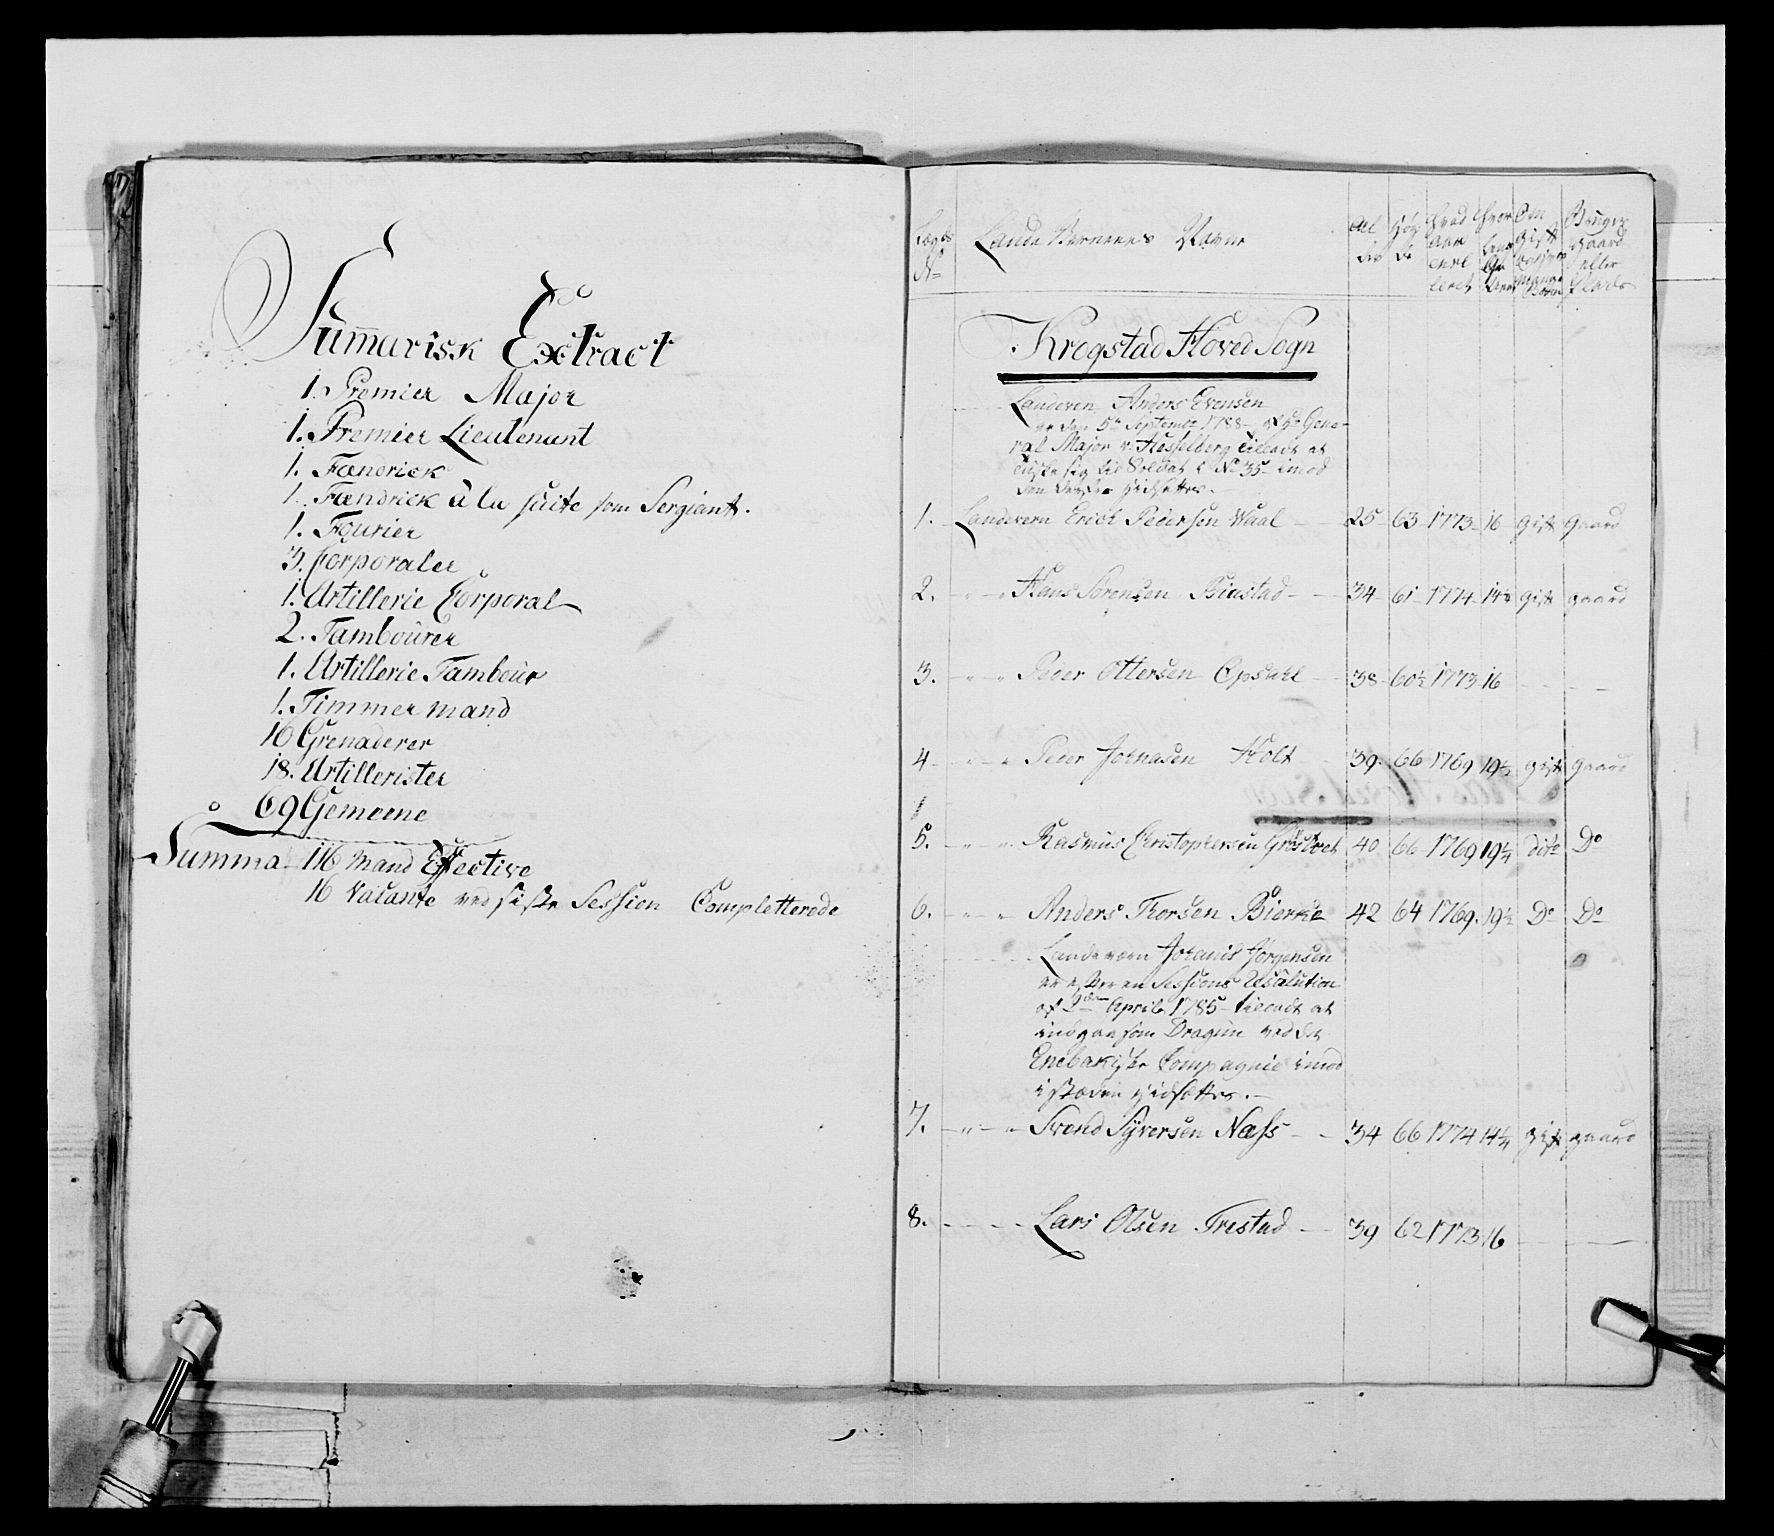 Summarisk Extract
1. Premier Major
1. Premier Lieutenant
1. Fændrick
1. Fændrick à la suite som Sergiant.
1. Fourier
3. Corporaler
1. Artillerie Corporal
2. Tambourer
1. Artillerie Tambour
1. Timmermand
16 Grenaderer
18. Artillerister
69 Gemeene
Summa 116 Mand Effective
16 Vacante ved siste Session Completterede
Lægds No Lande Vernenes Navne Al der Høy de Hvad Aar enrol leret Hvor læn Om Gift Bruger gaard eller Plads
Krogstad Hoved Sogn
Landvern Anders Evensen
er den 5te Septembr 1788 af Hr Gene-
ral Major v: Hesselberg tilladt at
sig til Soldat i No 35 imod
1. Landvern Erich Pedersen Waal 25 63 1773 16 Gift Gaard
2. " " Hans Sørensen Biustad 34 61 1774 14½ gift gaard
3. " " Peder Ottersen Opsahl 38 60½ 1773 16 — —
4 " " Peder Johnasen Holt 39 66 1769 19½ gift Gaard
5. " " Rasmus Christophersen Grøstvet 40 66 1769 19½ dito Do
6. " " Anders Thorsen Bierke 42 64 1769 19½ Do Do
Landevern Johanis Jørgensen
er efter en Sessions Resolution
af 2den April 1785 tilladt at
indgaa som Dragun ved det
Enebakiske Compagnie imod
7. " " Svend Syversen Næss 34 66 1774 14½ gift gaard
8. Lars Olsen Trestad 39 62 1773 16 — —